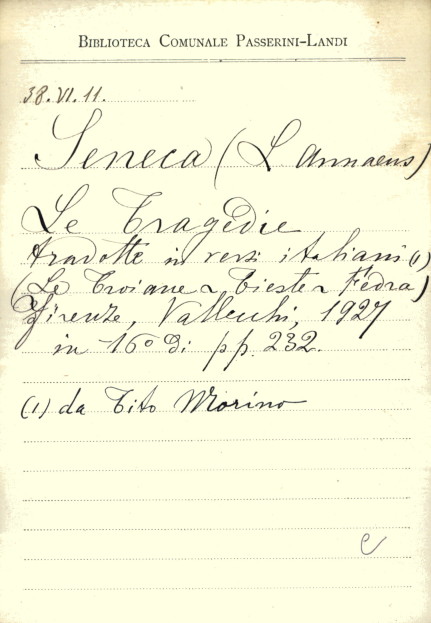 BIBLIOTECA COMUNALE PASSERINI-LANDI
38.VI.11.
Seneca (L. Annaeus)
Le Tragedie
tradotte in versi italiani (1)
(Le Troiane - Tieste - Fedra)
Firenze, Vallecchi, 1927
in 16° di pp. 232.
(1) da Tito Morino